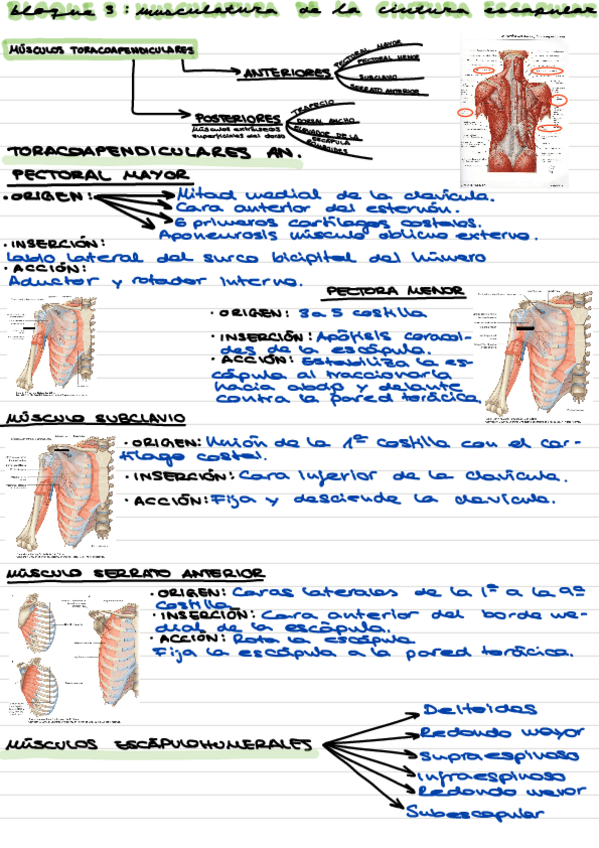 Bloque 3: musculatura de la cintura escapular
MÚSCULOS TORACOAPENDICULARES
ANTERIORES
PECTORAL MAYOR
PECTORAL MENOR
SUBCLAVIO
SERRATO ANTERIOR
POSTERIORES
Músculos extrínsecos
superficiales del dorso
TRAPECIO
DORSAL ANCHO
ELEVADOR DE LA
ESCÁPULA
ROMBOIDES
TORACOAPENDICULARES AN.
PECTORAL MAYOR
· ORIGEN:
Mitad medial de la clavícula.
Cara anterior del esternón.
6 primeros cartílagos costales.
Aponeurosis músculo oblicuo externo.
· INSERCIÓN:
Labio lateral del surco bicipital del húmero
· ACCIÓN:
Aductor y rotador interno.
PECTORA MENOR
· ORIGEN: 3a 5 costilla
· INSERCIÓN: Apófisis coracoi-
des de la escápula.
· ACCIÓN: Estabiliza a es-
cápula al traccionarla
hacia abajo y delante
contra la pared torácica.
MÚSCULO SUBCLAVIO
· ORIGEN: Unión de la 1ª costilla con el car-
tílago costal.
· INSERCIÓN: Cara inferior de la clavícula.
· ACCIÓN: Fija y desciende la clavícula.
MÚSCULO SERRATO ANTERIOR
· ORIGEN: Caras laterales de la 1ª a la 9ª
costilla
· INSERCIÓN: Cara anterior del borde me-
dial de la escápula.
· ACCIÓN: Rota la escápula
Fija la escápula a la pared torácica.
MÚSCULOS ESCÁPULOHUMERALES
Deltoides
Redondo mayor
Supraespinoso
Infraespinoso
Redondo menor
Subescapular